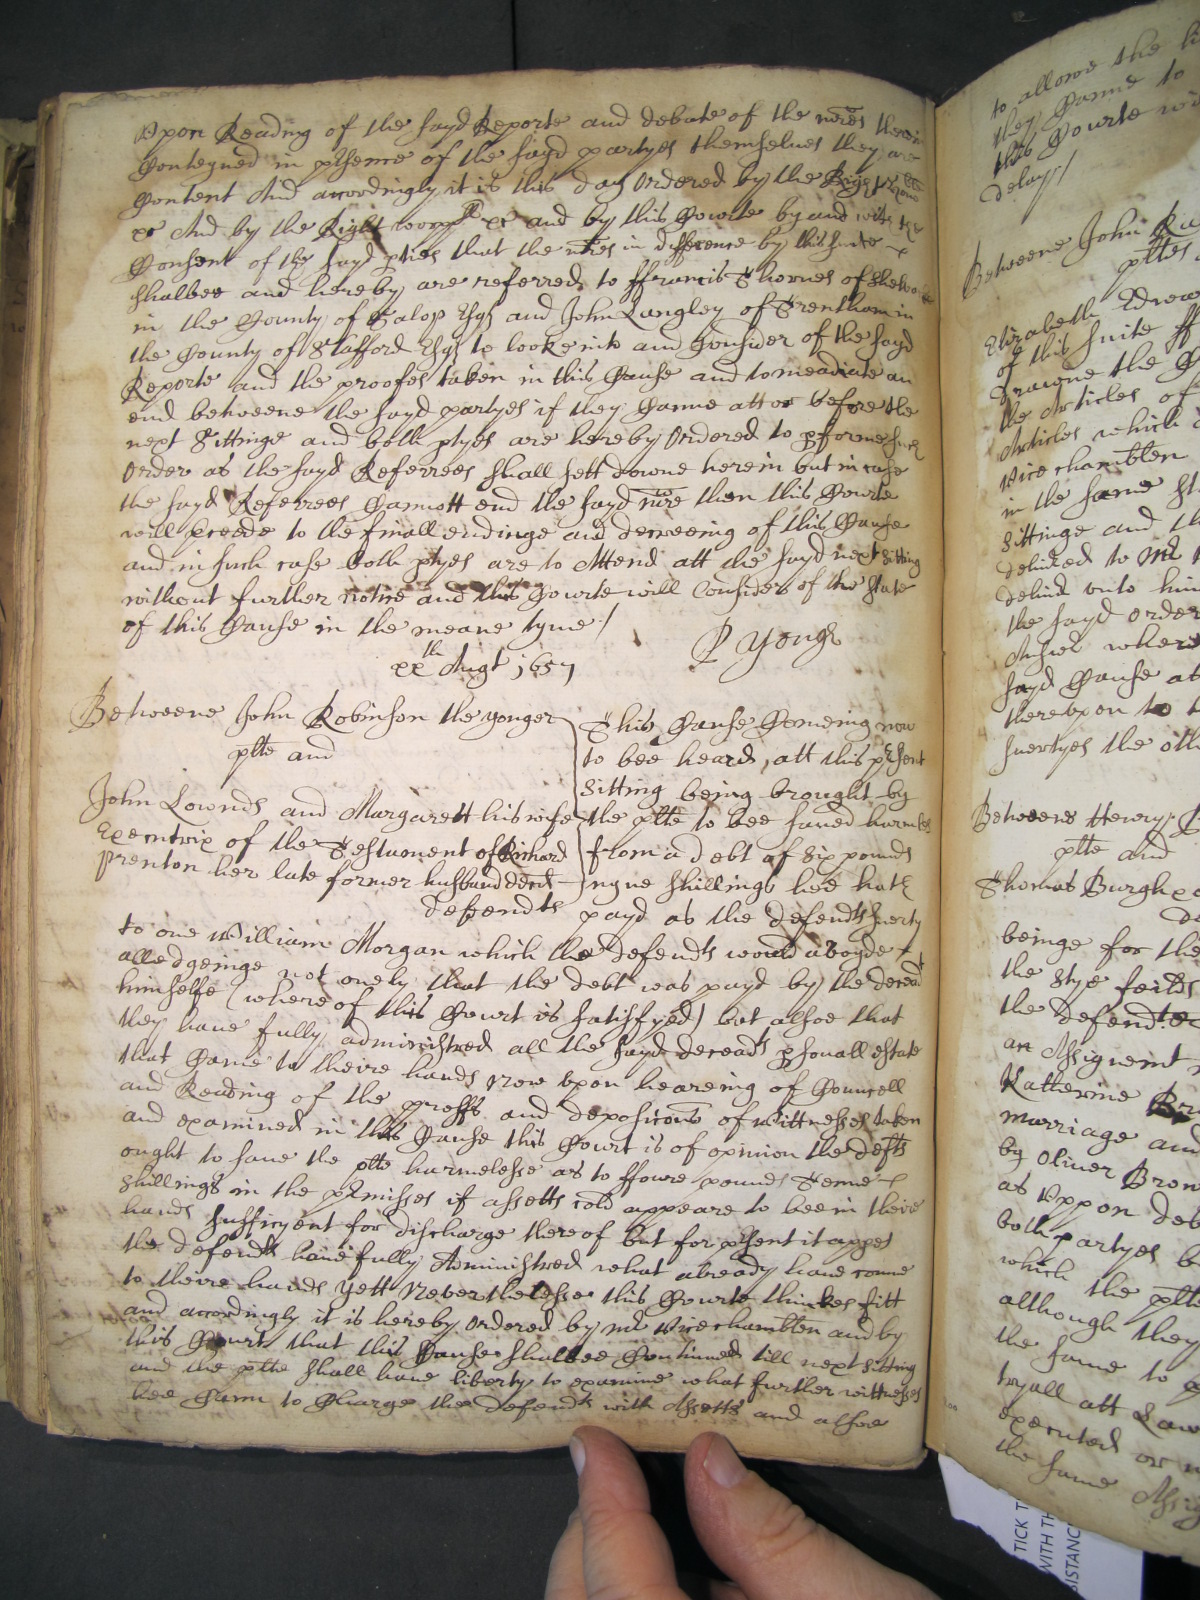 Vpon Reading of the sayd Reporte and debate of the mres therein
Conteyned in presence of the sayd partyes themselues they are
Content And accordingly it is this day Ordered by the Right
&c And by the Right worpll &c and by this Courte by and with the
Consent of the sayd pties that the mres in difference by this suite
shalbee and hereby are referred to ffrancis Thornes of
in the County of Salop Esqr and John Langley of Trentham in
the County of Stafford Esqr to looke into and Consider of the sayd
Reporte and the proofes taken in this Cause and to meadiate an
end betweene the sayd partyes if they Canne att or before the
next Sittinge and both ptyes are hereby Ordered to pforme such
Order as the sayd Referrees shall sett downe herein but in case
the sayd Referrees Cannott end the sayd mre then this Courte
will preede to the finall endinge and decreeing of this Cause
and in such case both ptyes are to Attend att the sayd next Sitting
without further notice and this Courte will Consider of the state
of this Cause in the meane tyme /
P Yonge
xxth Augt 1657
Betweene John Robinson the yonger
plte and
John Lownds and Margarett his wife
Executrix of the Testament of Richard
Prenton her late former husband decd
defendts
This Cause Comeing now
to bee heard, att this present
Sitting being brought by
the plte to bee saued harmles
from a debt of Six pounds
nyne shillings hee hath
payd as the defendts suerty
to one William Morgan which the defendts would avoyde
alledgeinge not onely that the debt was payd by the decead
himselfe (whereof this Court is satisfyed) but alsoe that
they haue fully administred all the sayd deceads psonall estate
that Came to theire hands Now vpon heareing of Councell
and Reading of the proffs and deposicons of wittnesses taken
and examined in this Cause this Court is of opinion the defts
ought to saue the plte harmelesse as to ffoure pounds Tenne
Shillings in the premisses if assetts cold appeare to bee in theire
hands sufficyent for discharge thereof but for present it appes
the defendts haue fully Administred what already haue come
to theire hands Yett Neverthelesse this Courte thinkes fitt
and accordingly it is hereby Ordered by mr vice chamblen and by
this Court that this Cause shalbee Continued till next sitting
and the plte shall haue liberty to examine what further wittnesses
hee Cann to Charge the defendts with Assetts and alsoe
to allowe the
they Canne to
this Courte
delay /
Betweene John
pltes
Elizabeth
of this suite
the
the Articles of
Articles which
vice chamblen
in the same
Sittinge and
deliued to mr
deliud vnto him
the sayd Order
where
sayd Cause
therevpon to
suertyes the
Betweene Henry
plte and
Thomas Burgh
beinge for the
the feilds
the defendt
an Assignemt
Katherine
marriage and
by Oliver
as Vppon
both partyes
which the plte
although they
the same to
tryall att Law
executed or
the same
TICK
WITH TH
DISTANC